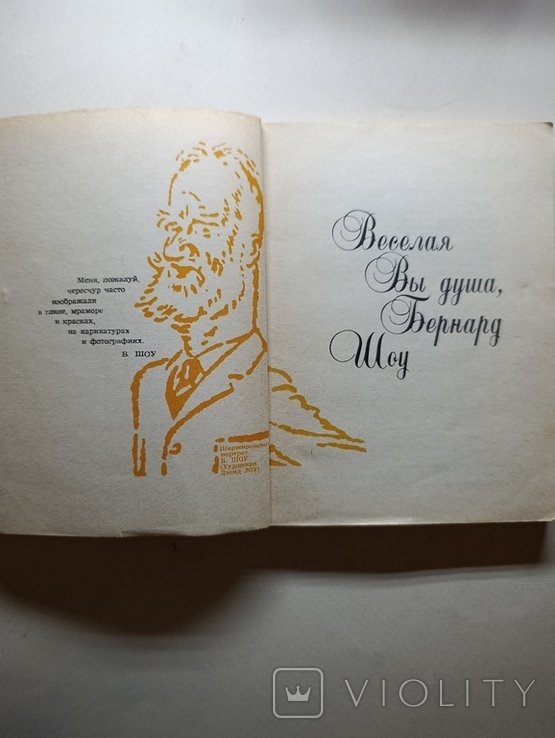 Меня, пожалуй,
чересчур часто
изображали
в глине, мраморе
и красках,
на карикатурах
и фотографиях.
Б. ШОУ
Шаржированный
портрет
Б. ШОУ
(Художник
Дэвид ЛОУ).
Веселая
Вы душа,
Бернард
Шоу
VIOLITY